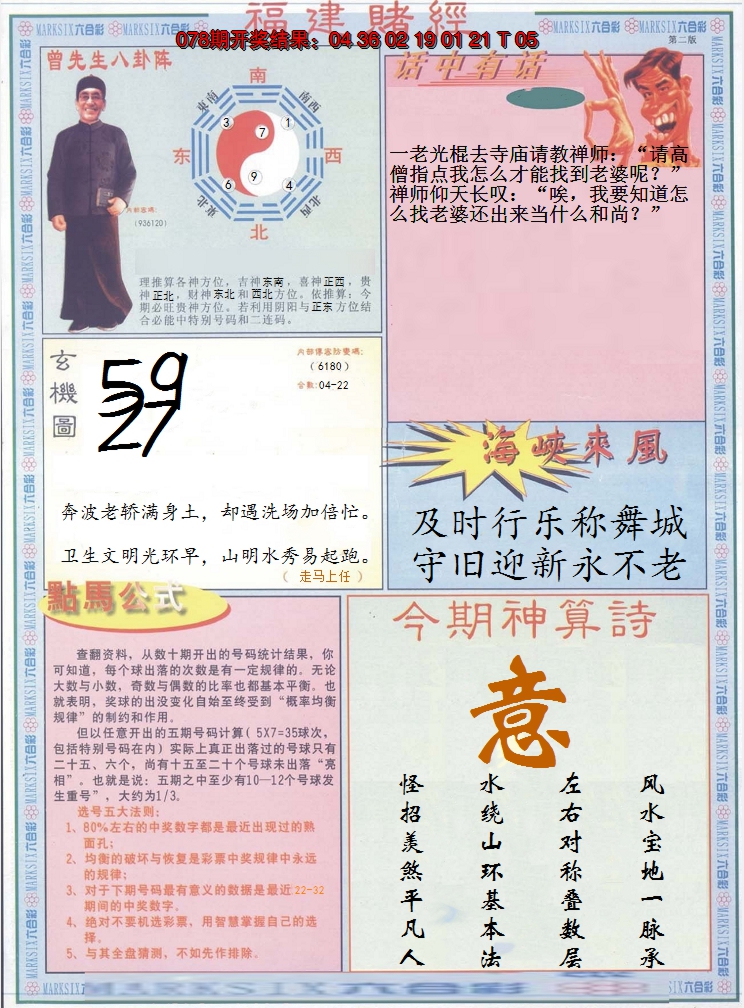 福建賭經
078期开奖结果：04 36 02 19 01 21 T 05
MARKSIX六合彩 MARKSIX六合彩 MARKSIX六合彩 MARKSIX六合彩
第二版
曾先生八卦阵
南
东南
南西
东
西
東北
北西
北
3 7 1
6 9 4
（936120）
理推算各神方位，吉神东南，喜神正西，贵
神正北，财神东北和西北方位。依推算：今
期必旺贵神方位。若利用阴阳与正东方位结
合必能中特别号码和二连码。
话中有话
一老光棍去寺庙请教禅师：“请高
僧指点我怎么才能找到老婆呢？”
禅师仰天长叹：“唉，我要知道怎
么找老婆还出来当什么和尚？”
玄機圖
59
27
（6180）
合数:04-22
奔波老轿满身土，却遇洗场加倍忙。
卫生文明光环早，山明水秀易起跑。
（ 走马上任 ）
海峽來風
及时行乐称舞城
守旧迎新永不老
點馬公式
查翻资料，从数十期开出的号码统计结果，你
可知道，每个球出落的次数是有一定规律的。无论
大数与小数，奇数与偶数的比率也都基本平衡。也
就表明，奖球的出没变化自始至终受到“概率均衡
规律”的制约和作用。
但以任意开出的五期号码计算（5X7=35球次，
包括特别号码在内）实际上真正出落过的号球只有
二十五、六个，尚有十五至二十个号球未出落“亮
相”。也就是说：五期之中至少有10—12个号球发
生重号”，大约为1/3。
选号五大法则：
1、80%左右的中奖数字都是最近出现过的熟
面孔；
2、均衡的破坏与恢复是彩票中奖规律中永远
的规律；
3、对于下期号码最有意义的数据是最近22-32
期间的中奖数字。
4、绝对不要机选彩票，用智慧掌握自己的选
择。
5、与其全盘猜测，不如先作排除。
今期神算詩
意
风水宝地一脉承
左右对称叠数层
水绕山环基本法
怪招羡煞平凡人